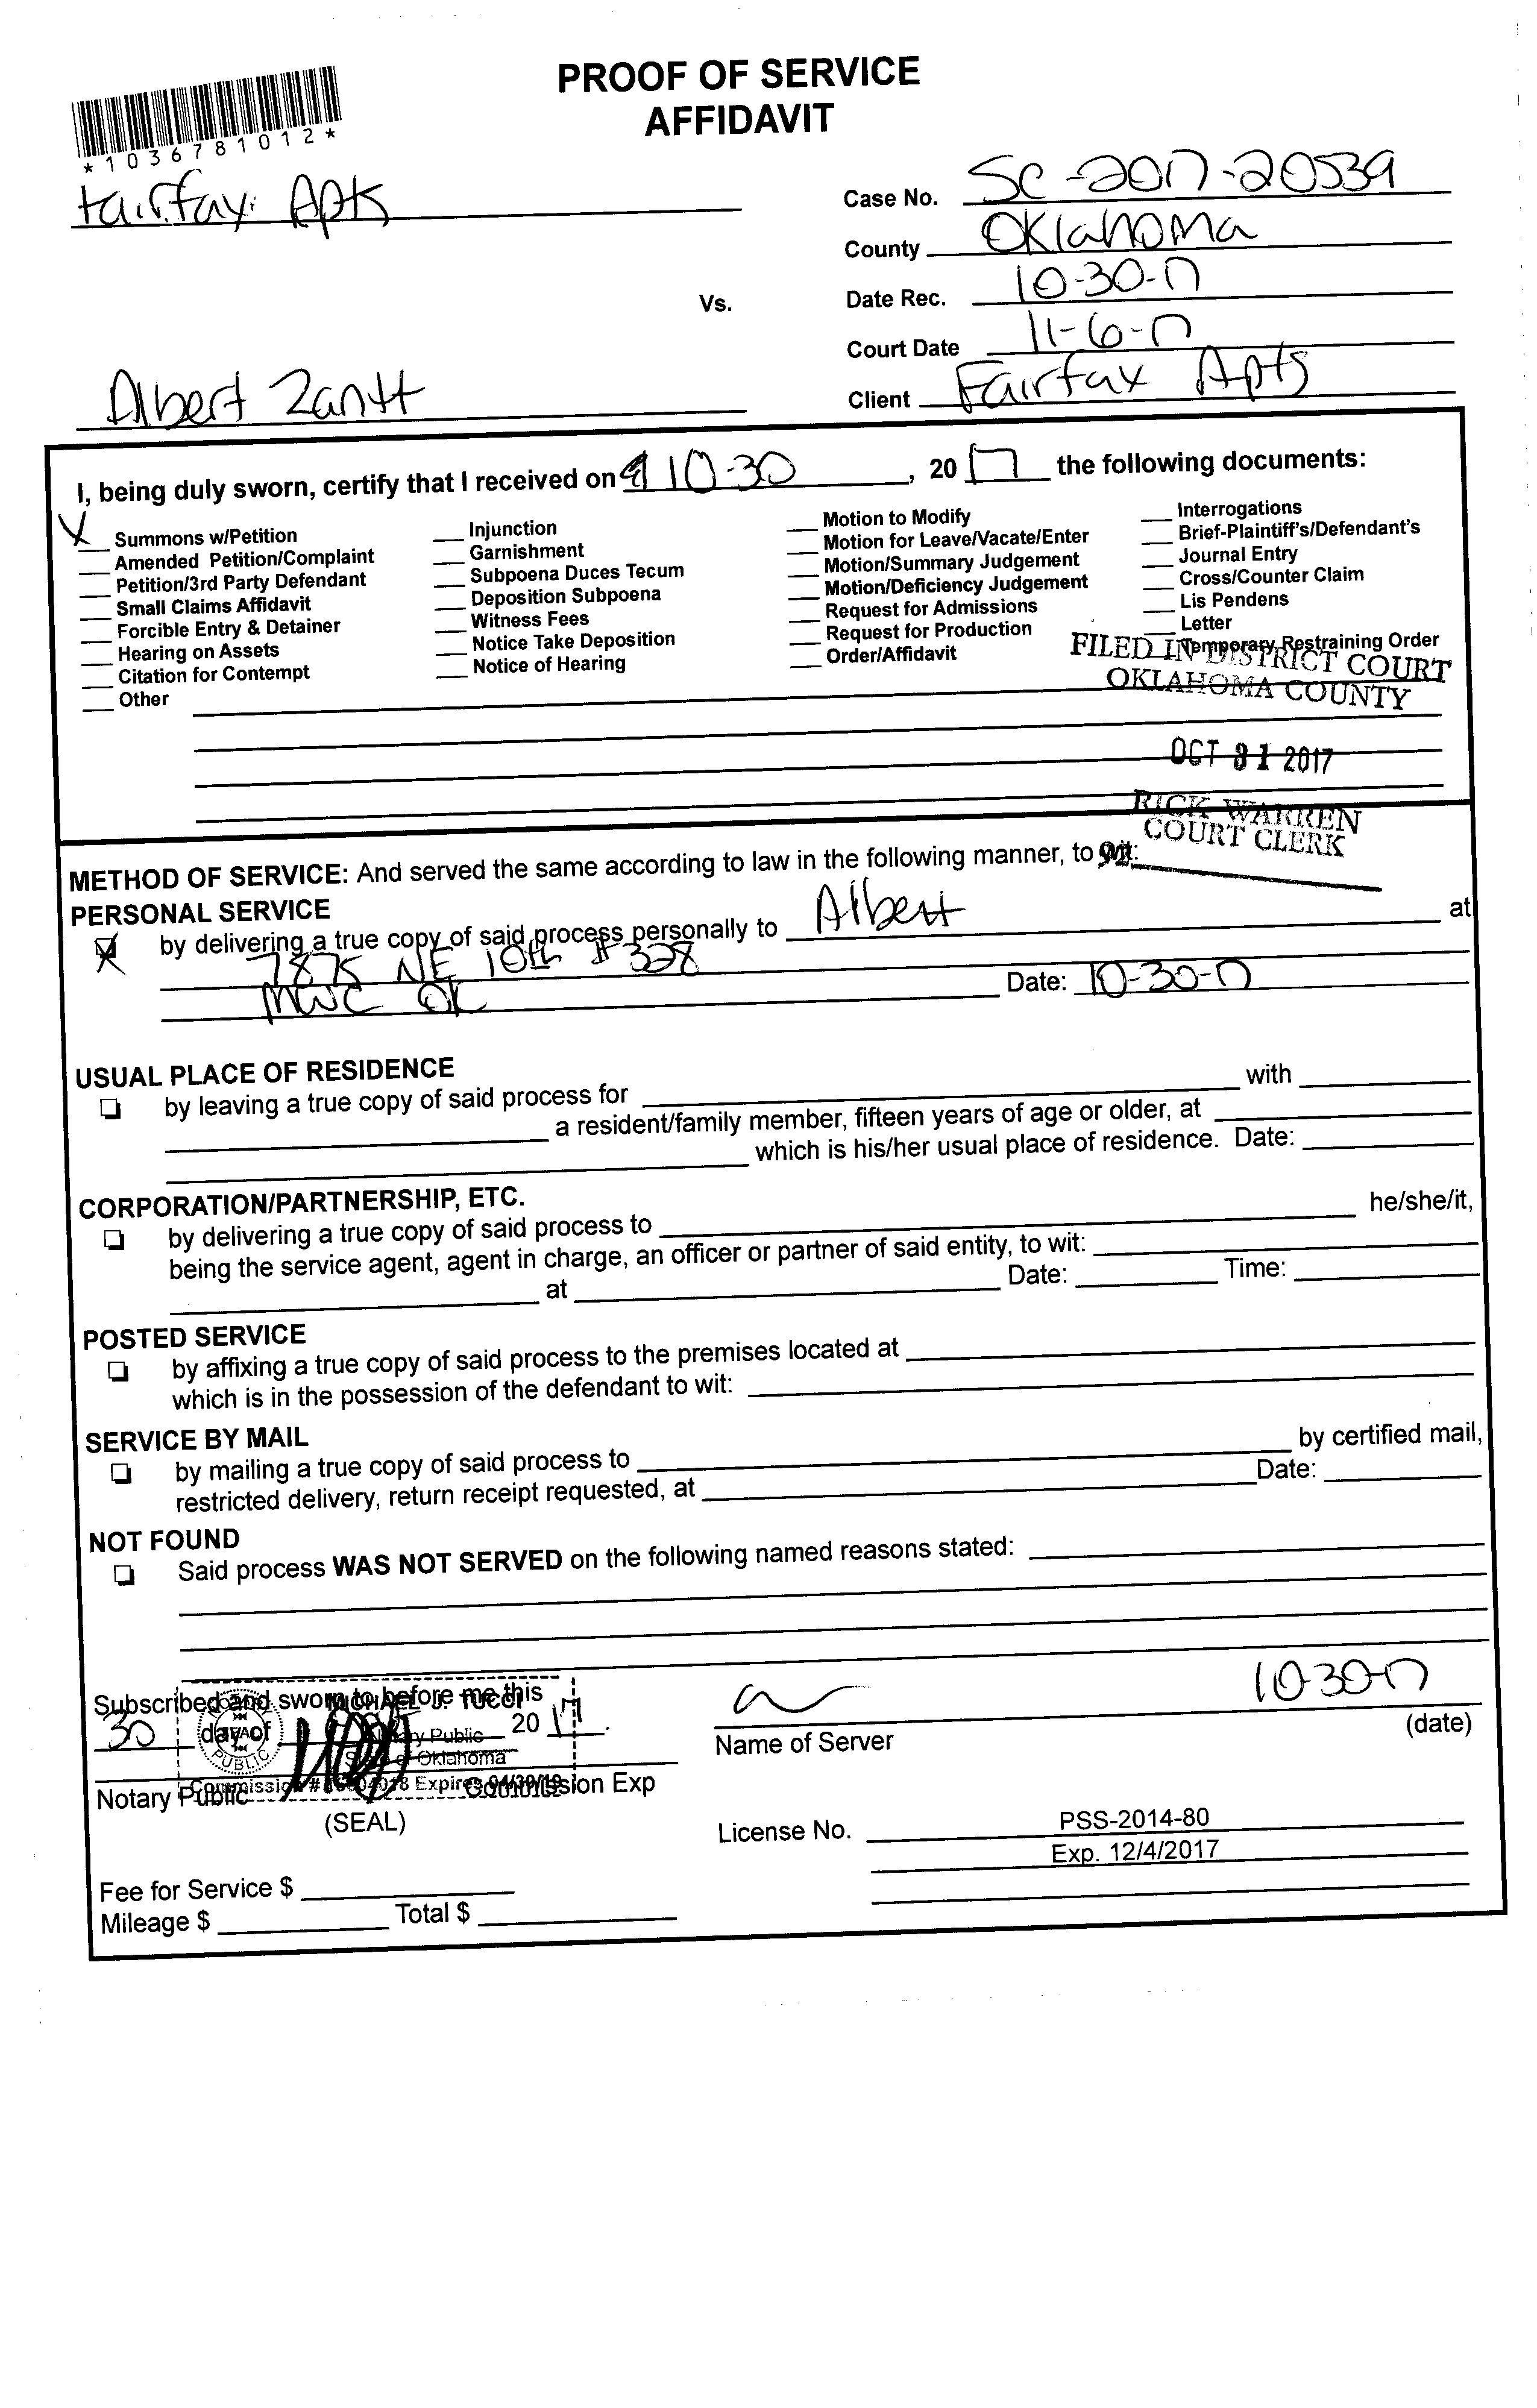 PROOF OF SERVICE
AFFIDAVIT
*1036781012*
Fairfax Apts
Case No. SC-2017-20539
County Oklahoma
Date Rec. 10-30-17
Vs.
Court Date 11-6-17
Albert Zantt
Client Fairfax Apts
I, being duly sworn, certify that I received on 10-30, 20 17 the following documents:
X Summons w/Petition
Amended Petition/Complaint
Petition/3rd Party Defendant
Small Claims Affidavit
Forcible Entry & Detainer
Hearing on Assets
Citation for Contempt
Other
Injunction
Garnishment
Subpoena Duces Tecum
Deposition Subpoena
Witness Fees
Notice Take Deposition
Notice of Hearing
Motion to Modify
Motion for Leave/Vacate/Enter
Motion/Summary Judgement
Motion/Deficiency Judgement
Request for Admissions
Request for Production
Order/Affidavit
Interrogations
Brief-Plaintiff's/Defendant's
Journal Entry
Cross/Counter Claim
Lis Pendens
Letter
Temporary Restraining Order
FILED IN DISTRICT COURT
OKLAHOMA COUNTY
OCT 31 2017
RICK WARREN
COURT CLERK
92
METHOD OF SERVICE: And served the same according to law in the following manner, to wit:
PERSONAL SERVICE
X by delivering a true copy of said process personally to Albert at
7875 NE 10th #328
MWC OK Date: 10-30-17
USUAL PLACE OF RESIDENCE
by leaving a true copy of said process for with
a resident/family member, fifteen years of age or older, at
which is his/her usual place of residence. Date:
CORPORATION/PARTNERSHIP, ETC.
by delivering a true copy of said process to he/she/it,
being the service agent, agent in charge, an officer or partner of said entity, to wit:
at Date: Time:
POSTED SERVICE
by affixing a true copy of said process to the premises located at
which is in the possession of the defendant to wit:
SERVICE BY MAIL
by mailing a true copy of said process to by certified mail,
restricted delivery, return receipt requested, at Date:
NOT FOUND
Said process WAS NOT SERVED on the following named reasons stated:
Subscribed and sworn to before me this
30 day of 20 17.
MICHAEL J. TUCCI
Notary Public
State of Oklahoma
Expires 04/30/19
Notary Public Commission Exp
(SEAL)
10-30-17
Name of Server (date)
License No. PSS-2014-80
Exp. 12/4/2017
Fee for Service $
Mileage $ Total $